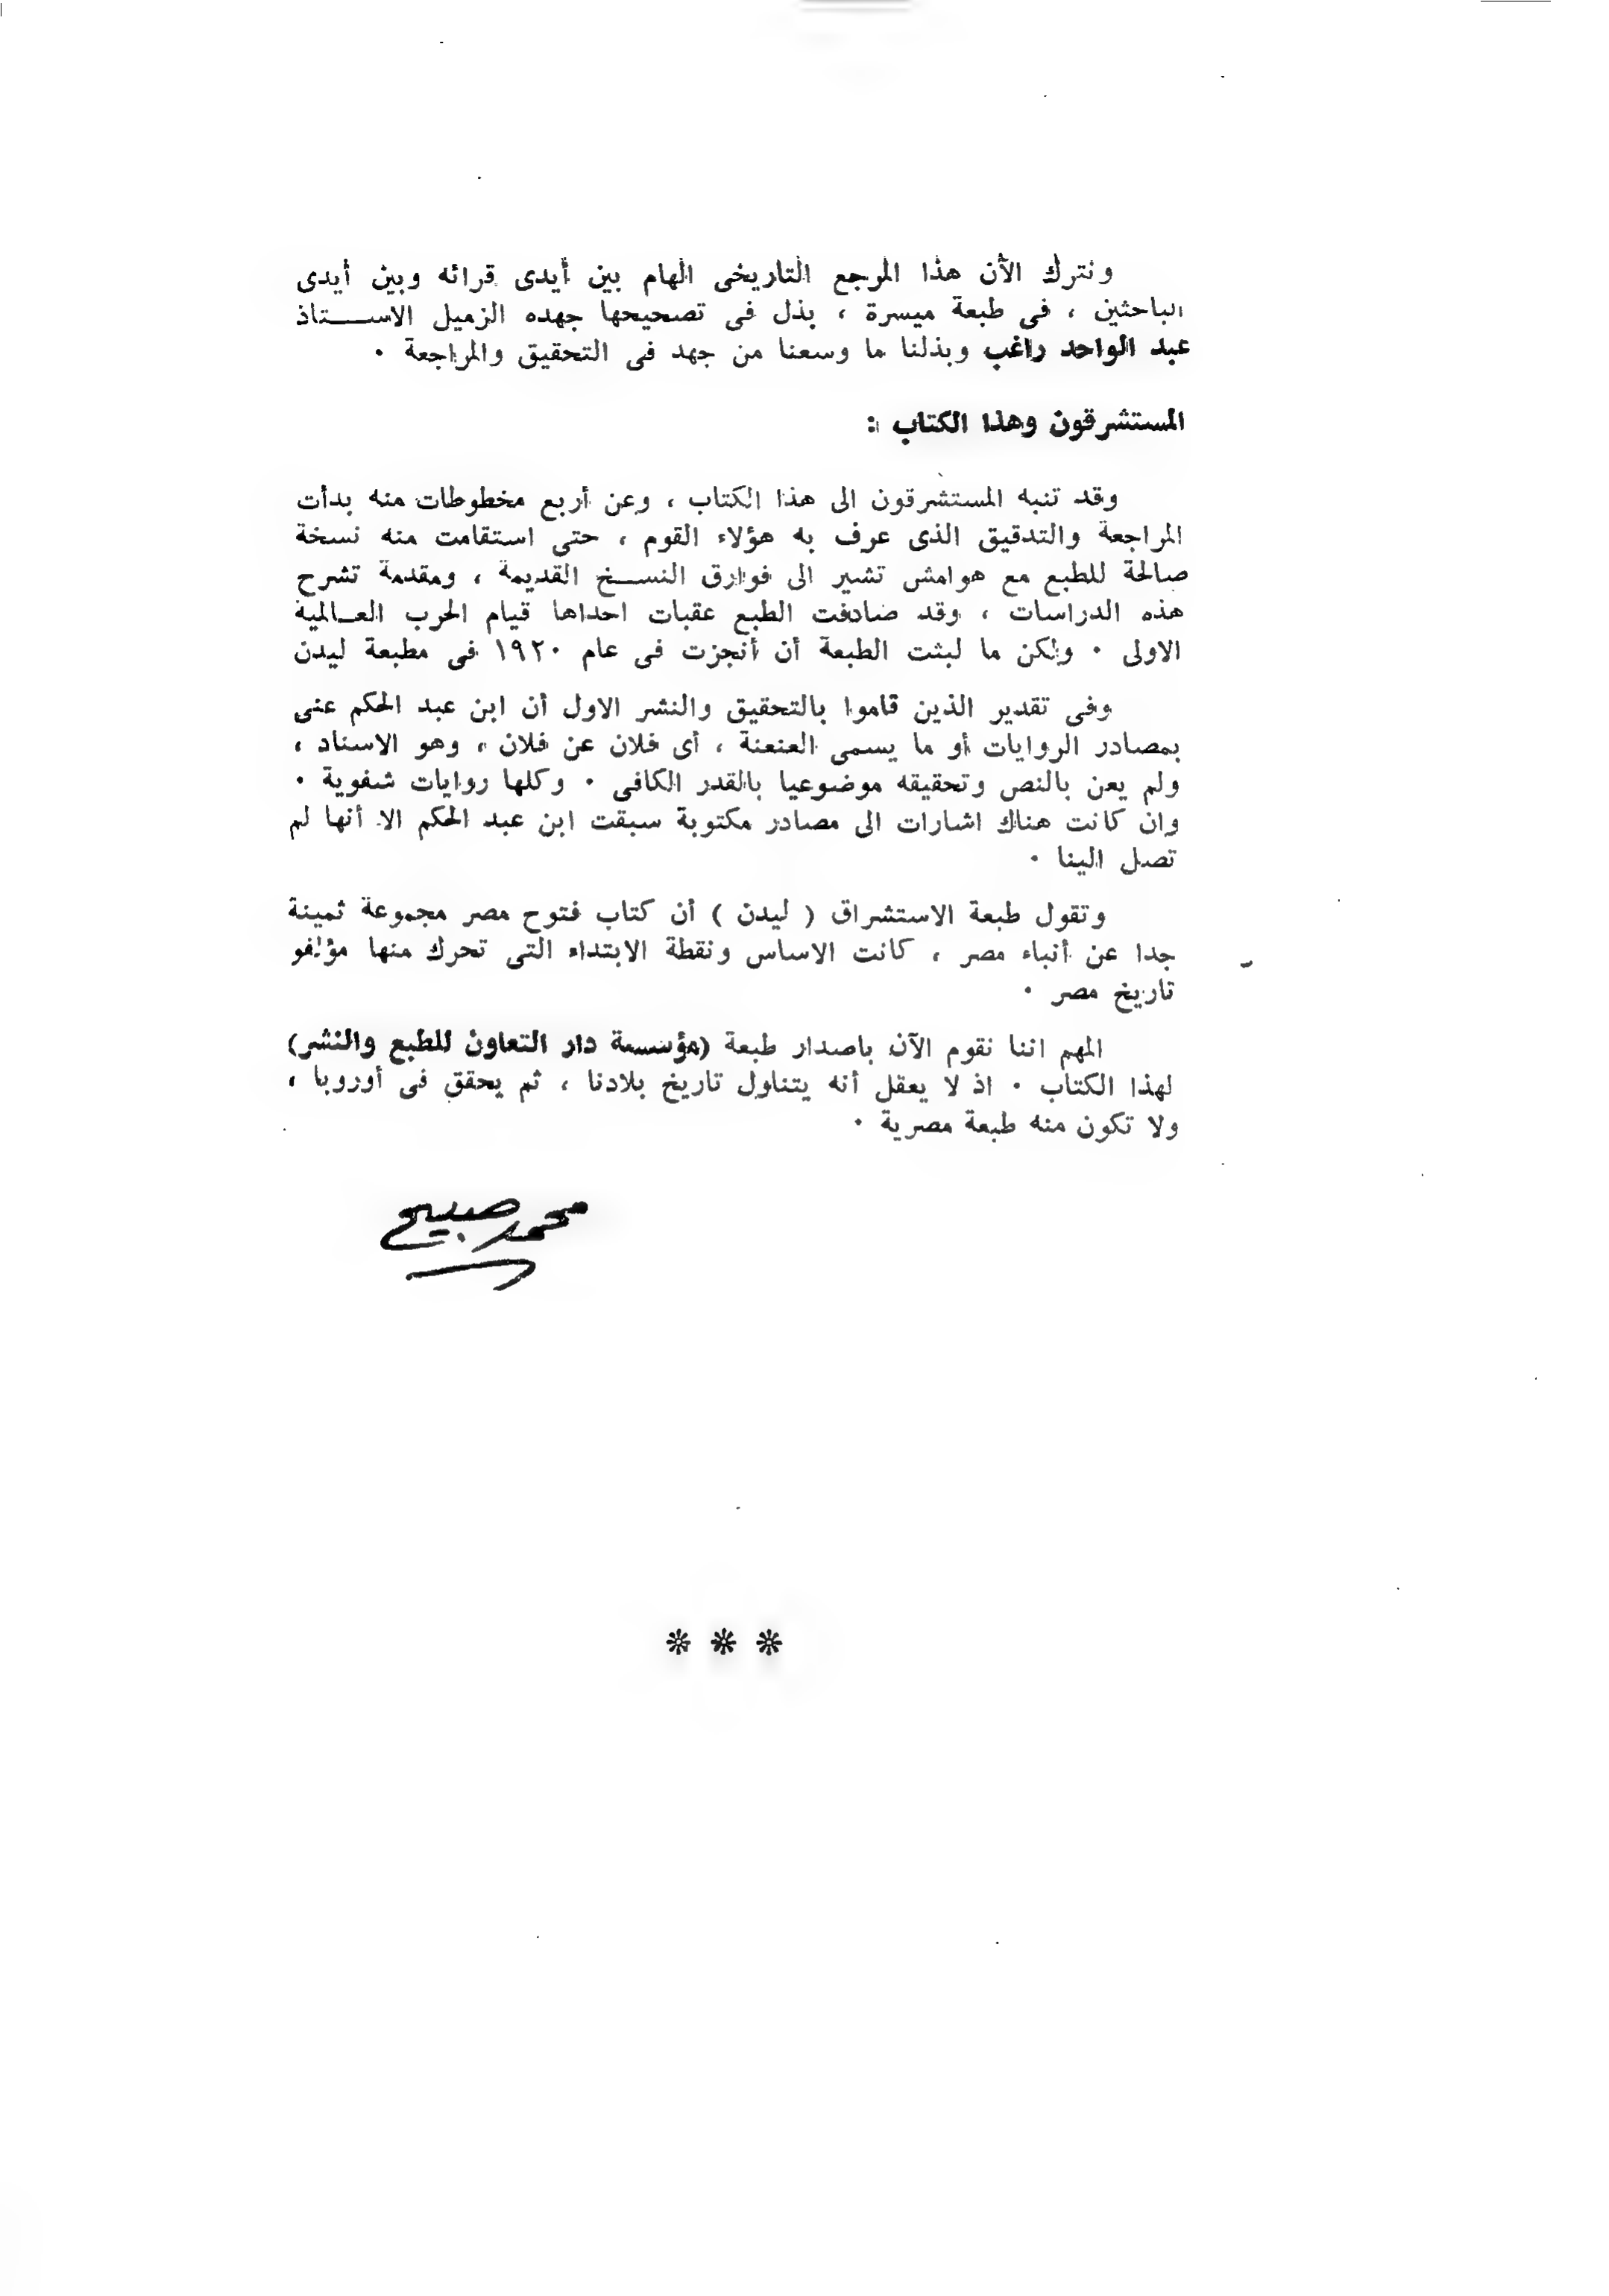 ونترك الآن هذا المرجع التاريخى الهام بين أيدى قرائه وبين أيدى
الباحثين ، فى طبعة ميسرة ، بذل فى تصحيحها جهده الزميل الاســـتاذ
عبد الواحد راغب وبذلنا ما وسعنا من جهد فى التحقيق والمراجعة ٠
المستشرقون وهذا الكتاب :
وقد تنبه المستشرقون الى هذا الكتاب ، وعن أربع مخطوطات منه بدأت
المراجعة والتدقيق الذى عرف به هؤلاء القوم ، حتى استقامت منه نسخة
صالحة للطبع مع هوامش تشير الى فوارق النســخ القديمة ، ومقدمة تشرح
هذه الدراسات ، وقد صادفت الطبع عقبات احداها قيام الحرب العـالمية
الاولى ٠ ولكن ما لبثت الطبعة أن أنجزت فى عام ١٩٢٠ فى مطبعة ليدن
وفى تقدير الذين قاموا بالتحقيق والنشر الاول أن ابن عبد الحكم عنى
بمصادر الروايات أو ما يسمى العنعنة ، أى فلان عن فلان ، وهو الاسناد ،
ولم يعن بالنص وتحقيقه موضوعيا بالقدر الكافى ٠ وكلها روايات شفوية ٠
وان كانت هناك اشارات الى مصادر مكتوبة سبقت ابن عبد الحكم الا أنها لم
تصل الينا ٠
وتقول طبعة الاستشراق ( ليدن ) أن كتاب فتوح مصر مجموعة ثمينة
جدا عن أنباء مصر ، كانت الاساس ونقطة الابتداء التى تحرك منها مؤلفو
تاريخ مصر ٠
المهم اننا نقوم الآن باصدار طبعة (مؤسسة دار التعاون للطبع والنشر)
لهذا الكتاب ٠ اذ لا يعقل أنه يتناول تاريخ بلادنا ، ثم يحقق فى أوروبا ،
ولا تكون منه طبعة مصرية ٠
محمد صبيح
* * *